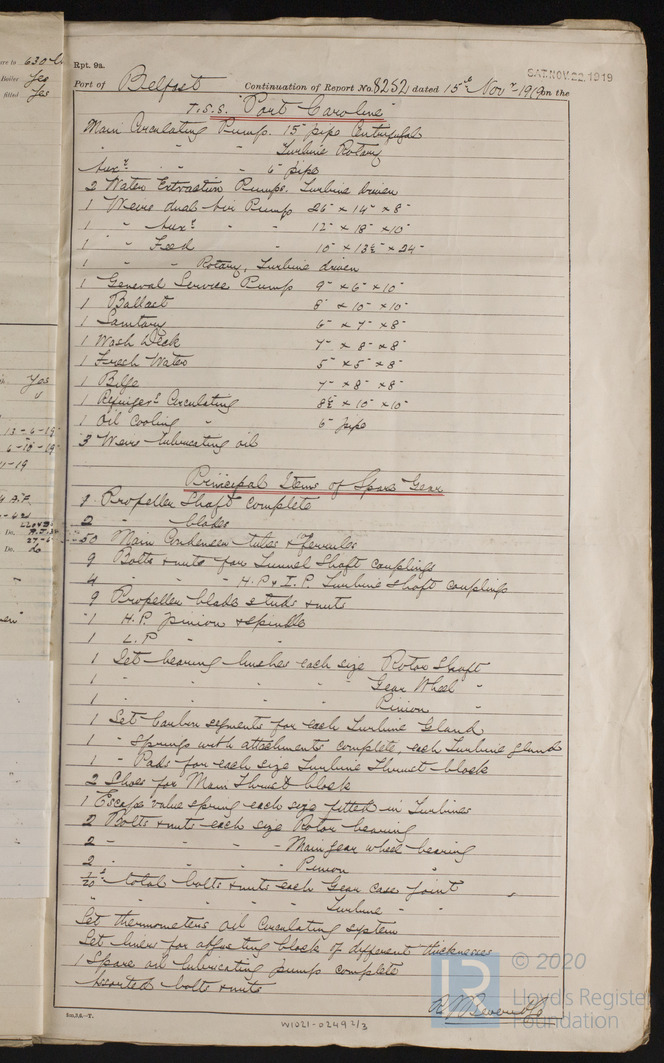 630
Yes
Yes
Rpt. 9a.
SAT. NOV. 22. 1919
Port of Belfast Continuation of Report No. 8252 dated 15th Novr 1919 on the
T.S.S. "Port Caroline"
Main Circulating Pump. 15" pipe Centrifugal
" " " Turbine Rotary
Auxy " " 6" pipe
2 Water Extraction Pumps. Turbine driven
1 Weirs dual Air Pump 26" x 14" x 8"
1 " Auxy " " 12" x 18" x 10"
1 " Feed " 10" x 13½" x 24"
1 " " Rotary, Turbine driven
1 General Service Pump 9" x 6" x 10"
1 Ballast 8" x 10" x 10"
1 Sanitary 6" x 7" x 8"
1 Wash Deck 7" x 8" x 8"
1 Fresh Water 5" x 5" x 8"
1 Bilge 7" x 8" x 8"
1 Refrigerg Circulating 8½" x 10" x 10"
1 Oil Cooling " 6" pipe
3 Weirs lubricating oil
Principal Items of Spare Gear
1 Propeller Shaft complete
2 " blades
50 Main Condenser tubes & ferrules
9 Bolts & nuts for Tunnel Shaft couplings
4 " " " H.P. & I.P. Turbine shaft couplings
9 Propeller blade studs & nuts
1 H.P. pinion & spindle
1 L.P. " "
1 Set bearing bushes each size Rotor Shaft
1 " " " " " Gear Wheel "
1 " " " " " Pinion "
1 Set Carbon segments for each Turbine Gland
1 " Springs with attachments complete each Turbine gland
1 " Pads for each size Turbine Thrust block
2 Shoes for Main Thrust block
1 Escape valve spring each size fitted in Turbines
2 Bolts & nuts each size Rotor bearing
2 " " " " Main gear wheel bearing
2 " " " " Pinion "
1/20th total bolts & nuts each Gear Case joint
" " " " " Turbine " "
Set thermometers oil Circulating system
Set liners for adjusting block of different thicknesses
1 Spare oil lubricating pump complete
Assorted bolts & nuts
W1021-0249 2/3
© 2020
Lloyd's Register
Foundation